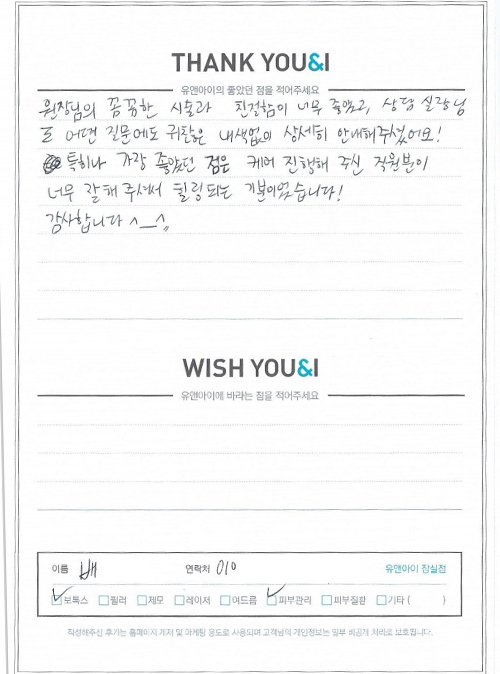 THANK YOU&I
유앤아이의 좋았던 점을 적어주세요
원장님의 꼼꼼한 시술과 친절함이 너무 좋았고, 상담 실장님
도 어떤 질문에도 귀찮은 내색없이 상세히 안내해주셨어요!
특히나 가장 좋았던 점은 케어 진행해 주신 직원분이
너무 잘해 주셔서 힐링되는 기분이었습니다!
감사합니다 ^__^
WISH YOU&I
유앤아이에 바라는 점을 적어주세요
이름 배 연락처 010 유앤아이 잠실점
보톡스 필러 제모 레이저 여드름 피부관리 피부질환 기타 ( )
작성해주신 후기는 홈페이지 게재 및 마케팅 용도로 사용되며 고객님의 개인정보는 일부 비공개 처리로 보호됩니다.